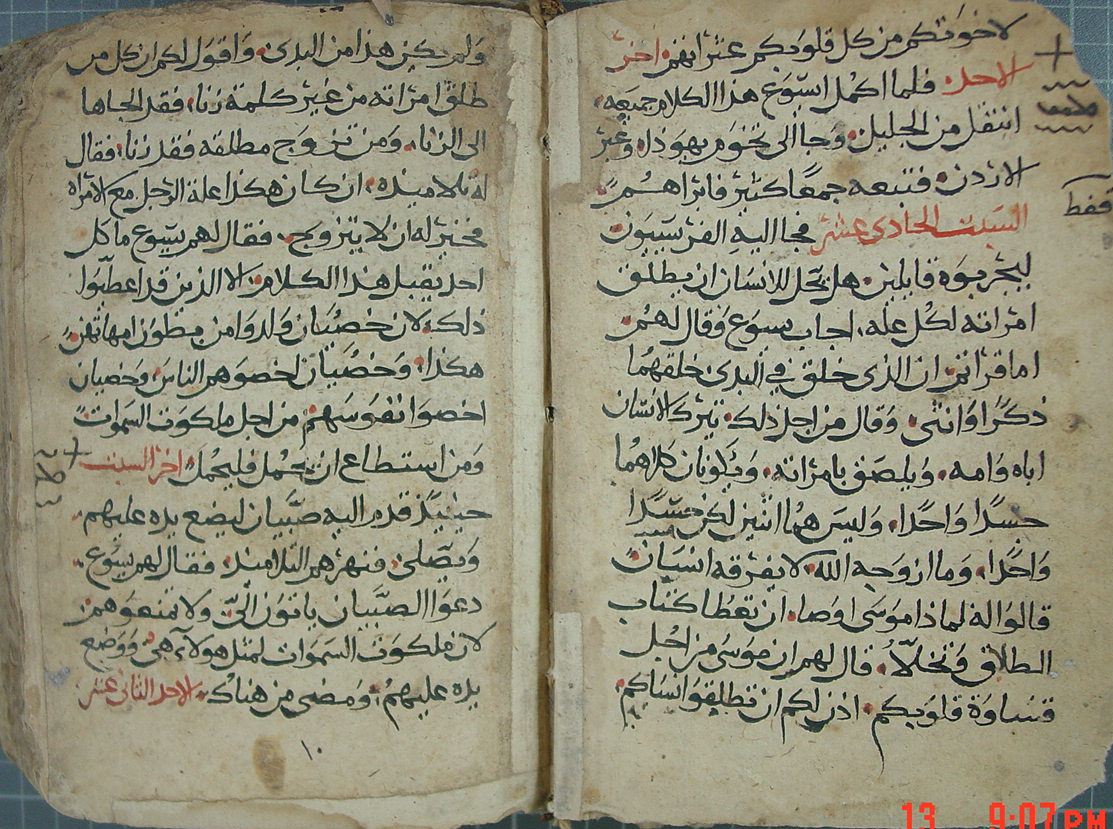 لاخوتكم من كل قلوبكم عثراتهم، اخر
الاحد، فلما اكمل ايسوع هذا الكلام جميعه،
انتقل من الجليل، وجا الى تخوم يهوذا، وعبر
الاردن، فتبعه جمعًا كثير فابراهم.
السبت الحادى عشر فجا اليه الفريسيون
ليجربوه قايلين، هل يحل للانسان ان يطلق
امراته لكل عله، اجاب يسوع وقال لهم،
اما قراتم، ان الذى خلق فى البدى خلقهما
ذكرًا وانثى، وقال من اجل ذلك يترك الانسان
اباه وامه، ويلصق بامراته، ويكونان كلاهما
جسدًا واحدًا، وليس هما اثنين لكن جسدًا
واحدًا، وما ازوجه الله، لا يفرقه انسان
قالوا له لماذا موسى اوصا، ان تعطا كتاب
الطلاق وتخلا، قال لهم ان موسى من اجل
قساوة قلوبكم، اذن لكم ان تطلقوا نساكم،
فقط
ولم يكن هذا من البدى، واقول لكم ان كل من
طلق امراته من غير كلمة زنا، فقد الجاها
الى الزنا، ومن تزوج مطلقه فقد زنا، فقال
له تلاميذه، ان كان هكذا علة الرجل مع الامراه
فخير له ان لا يتزوج، فقال لهم يسوع ما كل
احد يقبل هذا الكلام، الا الذين قد اعطيوا
ذلك، لان خصيان ولدوا من بطون امهاتهم
هكذا، وخصيان اخصوهم الناس، وخصيان
اخصوا نفوسهم، من اجل ملكوت السموات
ومن استطاع ان يحمل فليحمل، اخر السبت
حينيذ قدم اليه صبيان ليضع يده عليهم،
ويصلى، فنهرهم التلاميذ، فقال لهم يسوع،
دعوا الصبيان ياتون الىّ، ولا تمنعوهم،
لان ملكوت السموات لمثل هولاء هى، ووضع
يده عليهم، ومضى من هناك، الاحد الثانى عشر
١٠
13 9:07PM